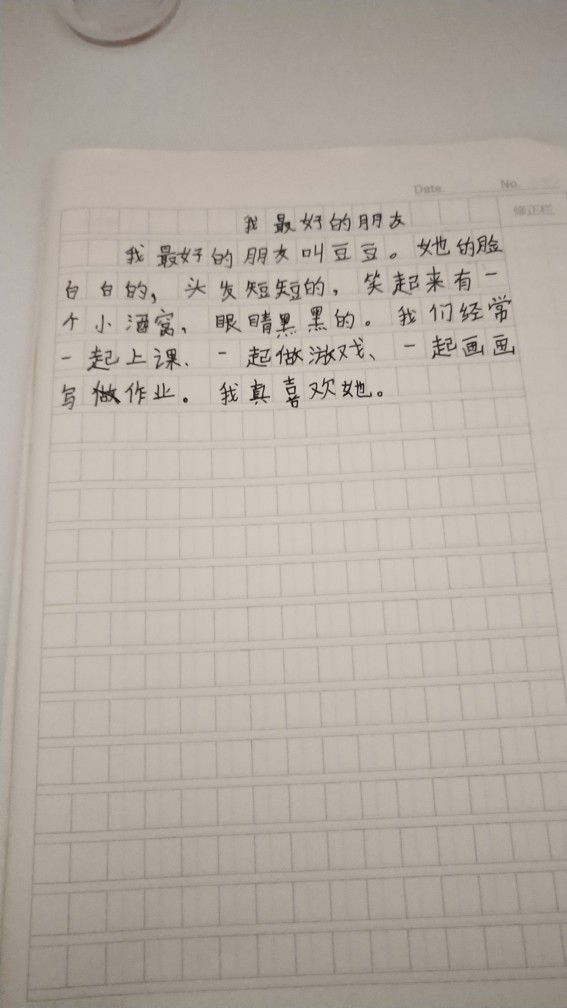 Date.
No.
修正栏
我最好的朋友
我最好的朋友叫豆豆。她的脸
白白的，头发短短的，笑起来有一
个小酒窝、眼睛黑黑的。我们经常
一起上课、一起做游戏、一起画画
写做作业。我真喜欢她。